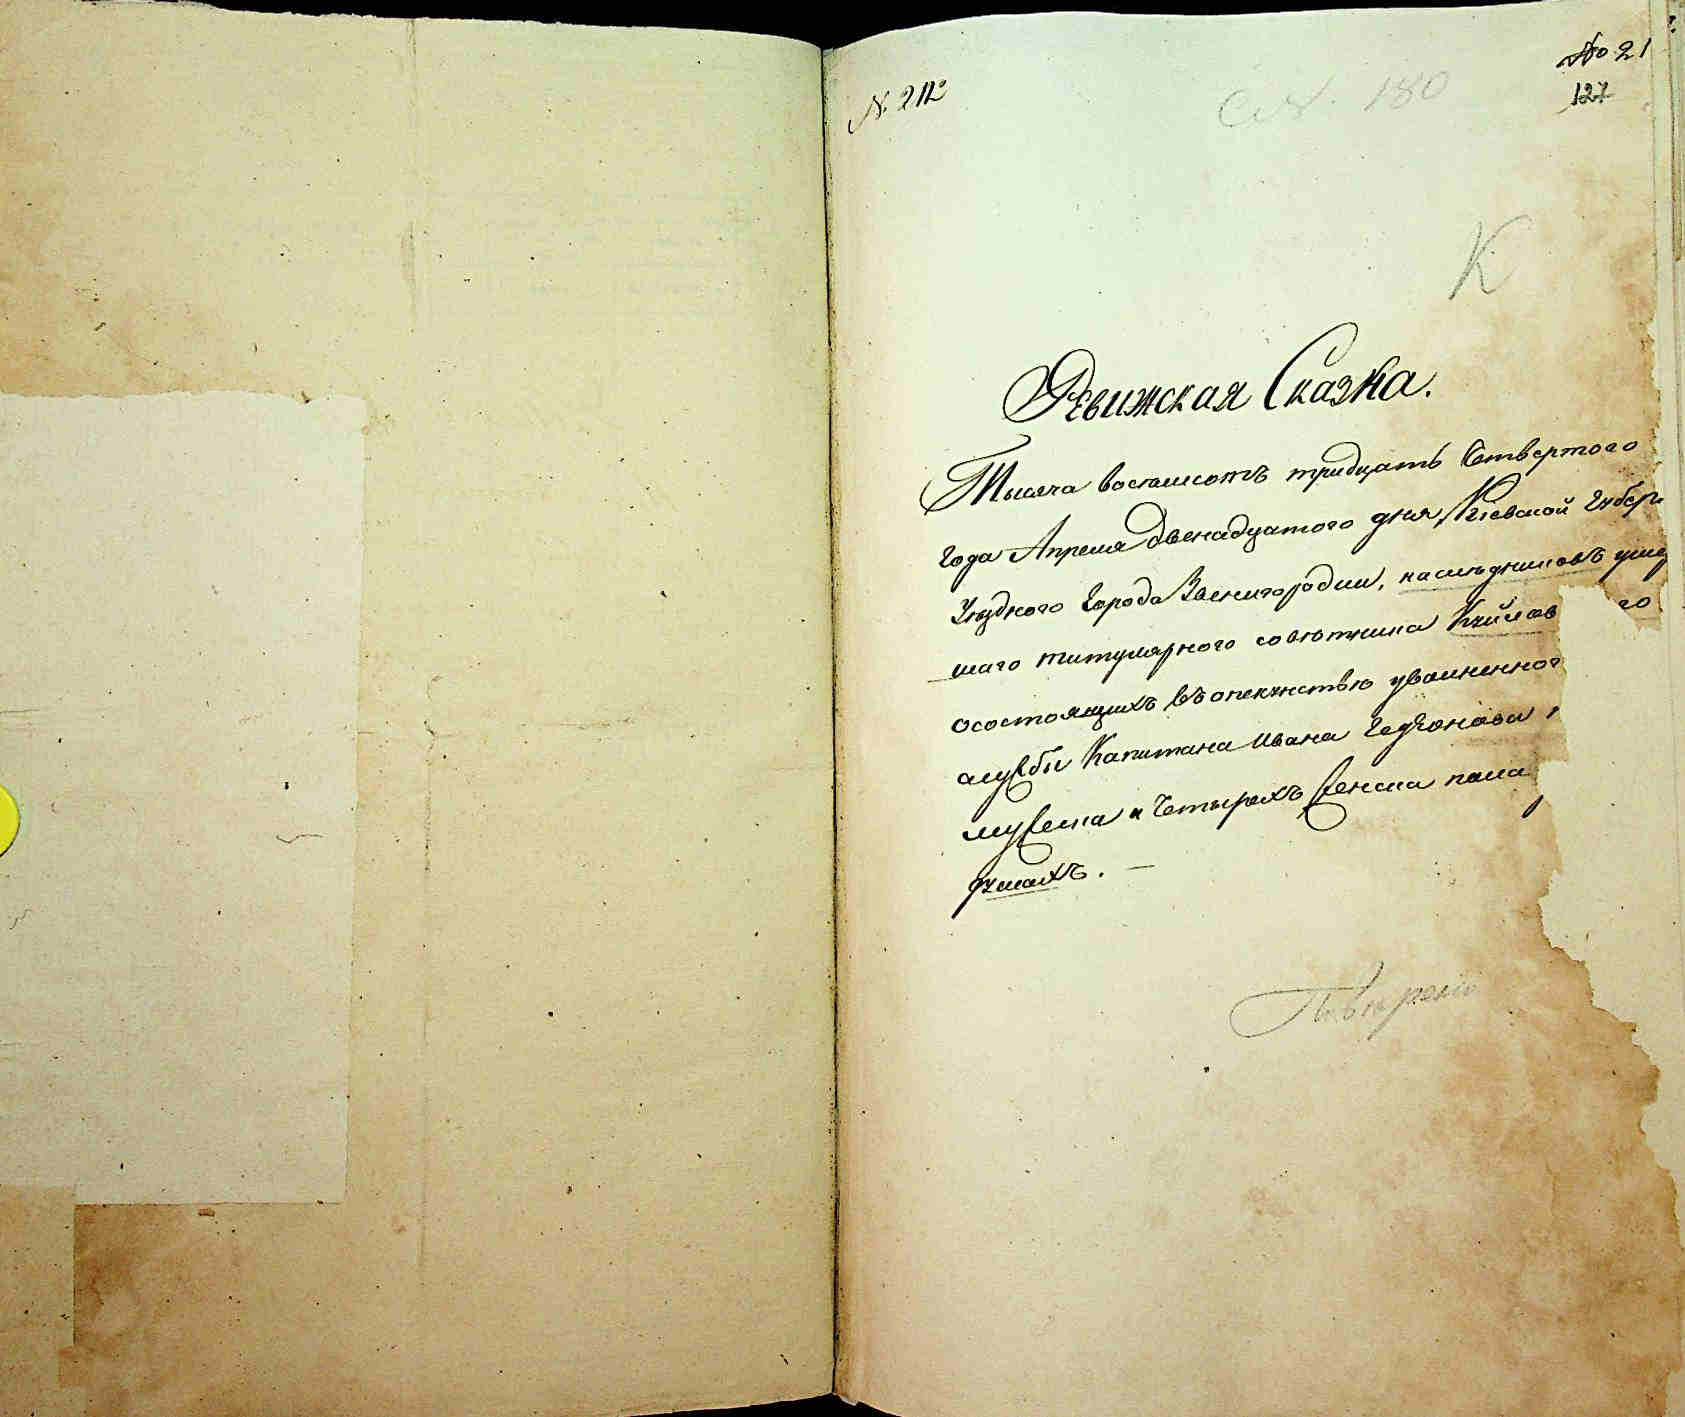 № 21
N. 212
127
180
К
Ревижская Сказка.
Тысяча восемьсотъ тридцать Четвертого
Года Апреля двенадцатого дня, Киевской Губер
Уезднего Города Звенигородки, наследниковъ умер
шаго титулярного советника
осостоящихъ въ опекунствѣ уволненног
службы Капитана Ивана
мужеска и Четырехъ Женска пола
душахъ. —